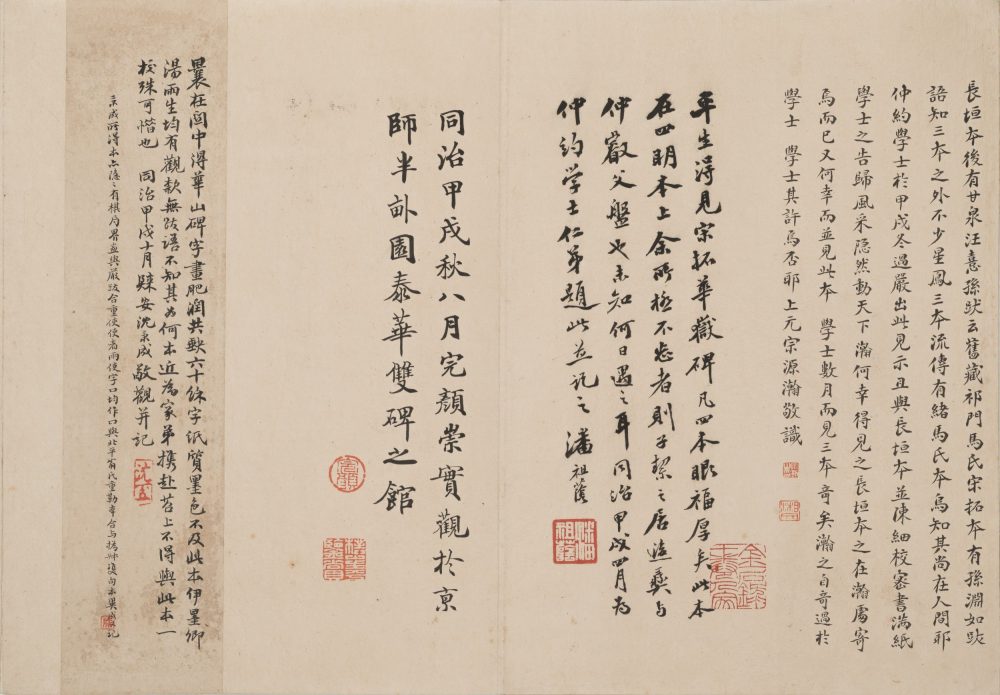 長垣本後有甘泉汪憙孫跋云舊藏祁門馬氏宋拓本有孫淵如跋
語知三本之外不少星鳳三本流傳有緒馬氏本烏知其尚在人間耶
仲約學士於甲戌冬過嚴出此見示且與長垣本並陳細校審書滿紙
學士之告歸風采隐然動天下瀚何幸得見之長垣本之在瀚處寄
焉而已又何幸而並見此本 學士數月而見三本奇矣瀚之自奇過於
學士 學士其許焉否耶 上元宗源瀚敬識
平生得見宗拓華嶽碑凡四本眼福厚矣此本
在四明本上余所極不忘者則子絜之居造彝与
仲歡父盤也未知何日遇之耳同治甲戌四月为
仲約学士仁弟題此並記之 潘祖蔭
同治甲戌秋八月完顏崇實觀於京
師半畝園泰華雙碑之館
曩在閩中得華山碑字畫肥潤共缺六十餘字紙質墨色不及此本伊墨卿
湯雨生均有觀款無跋語不知其为何本近為家弟携赴苔上不得與此本一
校殊可惜也 同治甲戌十月歸安沈秉成敬觀并記
秉成所得本亦隱隱有棋局界畫與嚴跋合重使使者兩使字口均作口與北平翁氏重勒本合